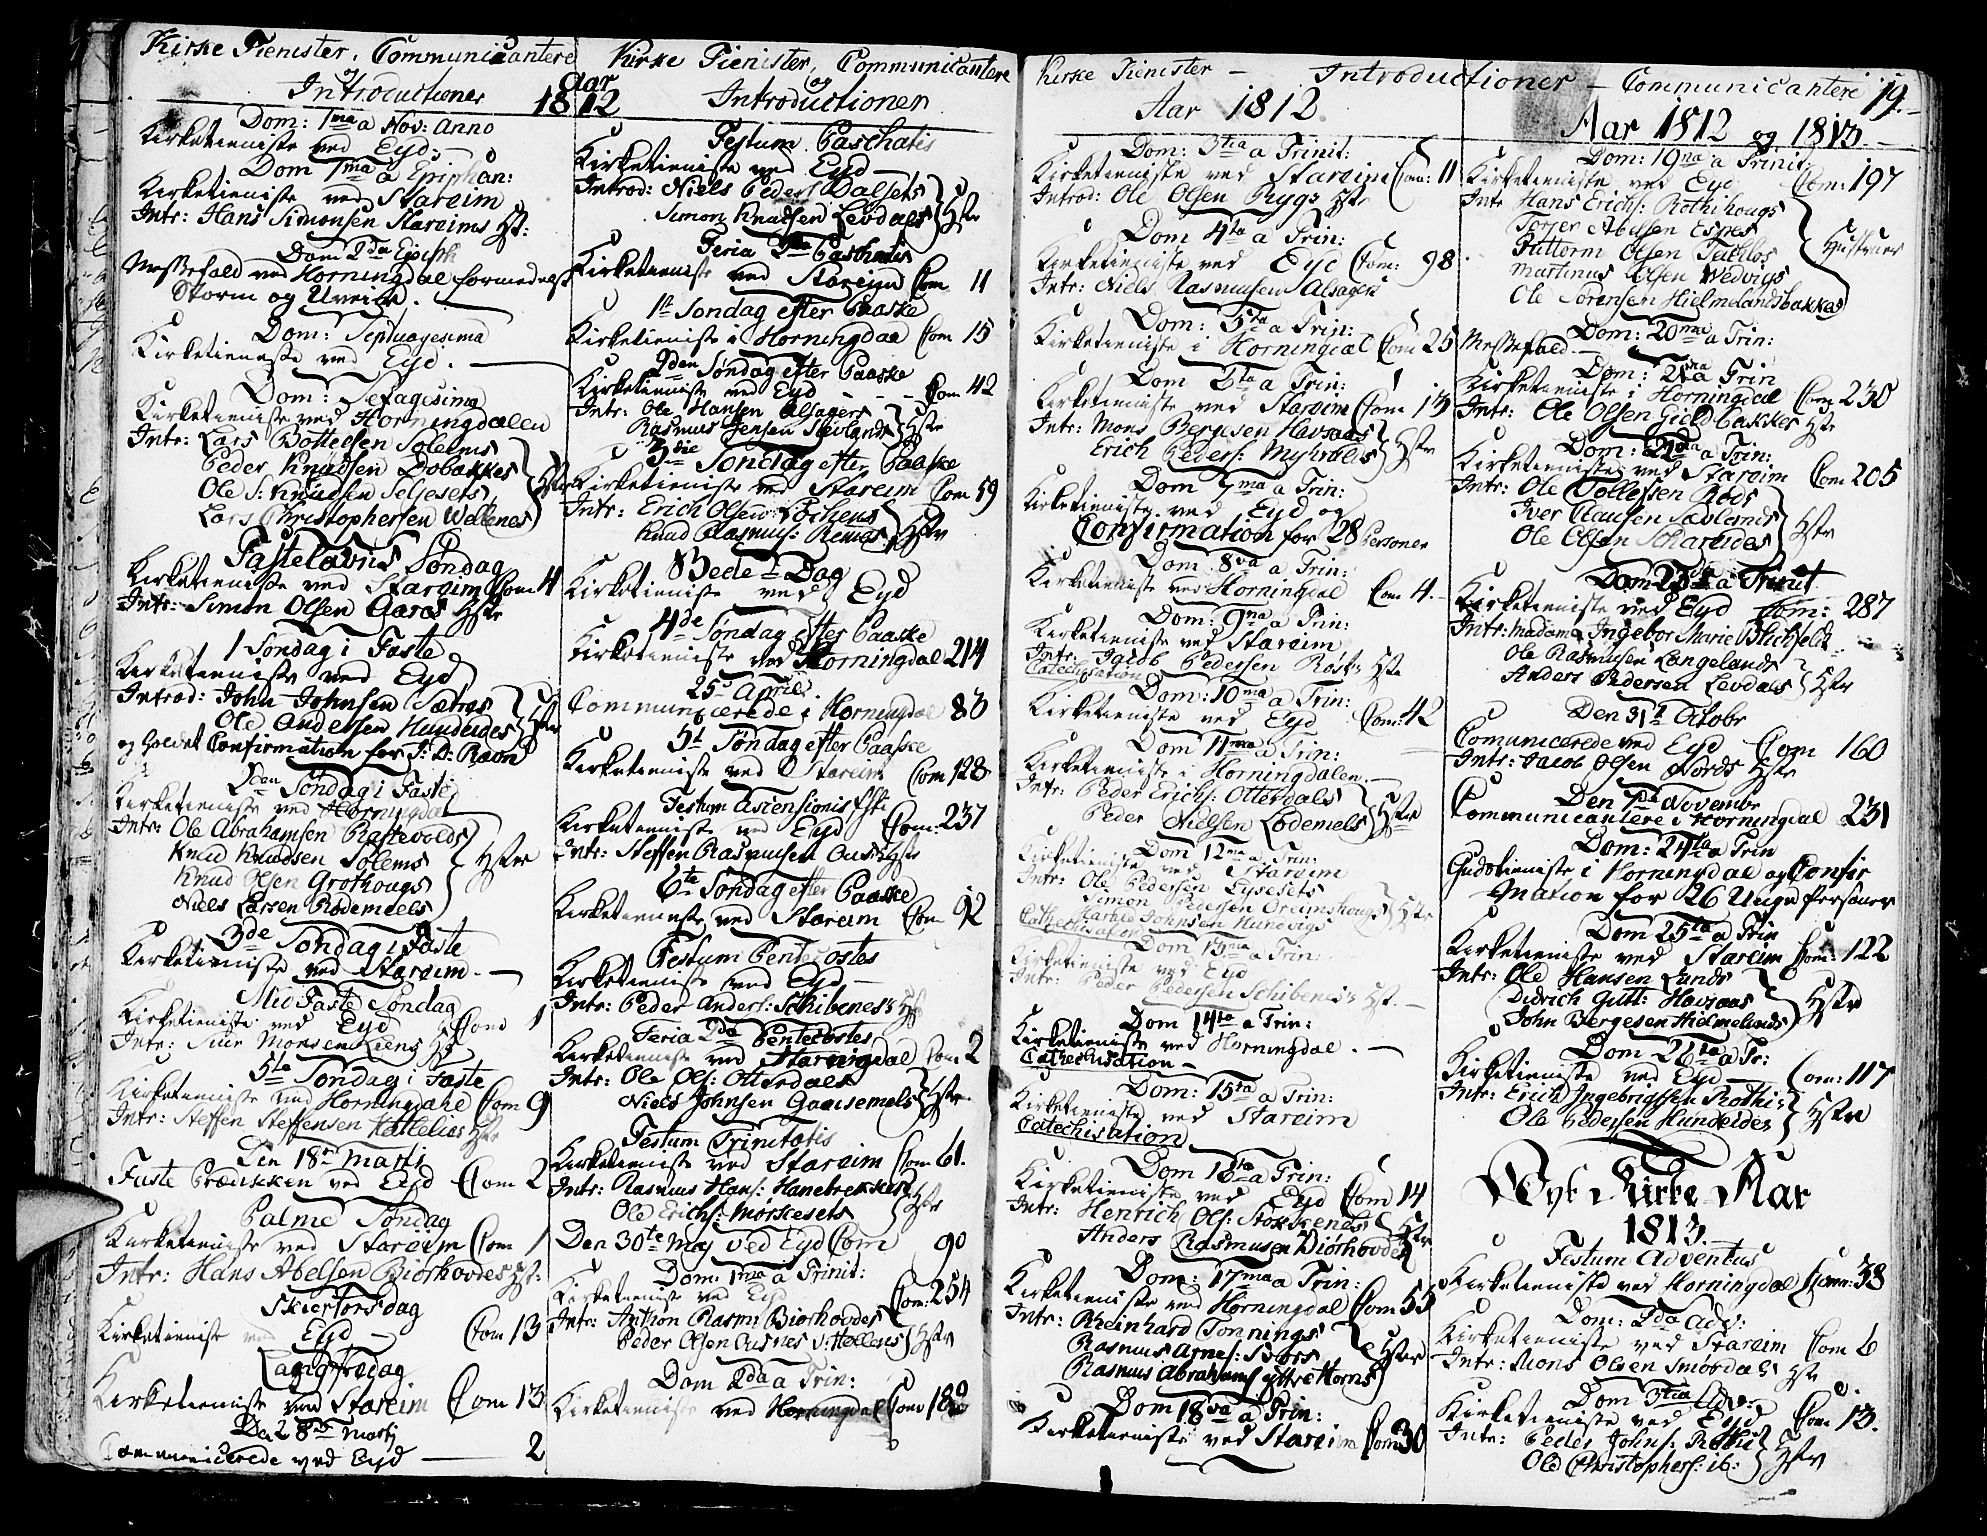 Kirke Tienister, Communicantere
og
Introductioner
Aar
1812
Dom: 1ma a Nov: Anno
Kirketieniste ved Eyd. —
Dom 1ma a Epiphan:
Kirketieniste ved Stareim
Intr: Hans Simonsen Stareims Hst:
Dom 2da Epiph
Messefald ved Horningdal formedelst
Storm og Uveir.
Dom: Septuagesima
Kirketieneste ved Eyd. —
Dom: Sexagesima
Kirketieniste ved Horningdalen
Intr: Lars Bottelsen Solems
Peder Knudsen Dobakkes
Ole S: Knudsen Seljesets
Lars Christophersen Wellenes
Hstr
Fastelavns Søndag
Kirketieniste ved Stareim Com 4
Intr: Simon Olsen Aaros Hstr
1 Søndag i Faste
Kirketieniste ved Eyd
Introd: John Johnsen
Ole Andersen Hundeides
Hstr
og holdet Confirmation for J: D: Ravn
2den Søndag i Faste
Kirketieniste ved Horningdal
Intr: Ole Abrahamsen Raftevolds
Knud Knudsen Solems
Knud Olsen Grothougs
Niels Larsen Rødemeels
Hstre
3de Søndag i Faste
Kirketieniste ved Stareim. —
Mid Faste Søndag
Kirketieniste ved Eyd Com 1
Intr: Siur Monsen Liens Hst
5te Søndag i Faste
Kirketieniste ved Horningdahl Com 9
Intr: Steffen Steffensen Hstr
Den 18n Marti
Faste Prædikken ved Eyd Com 2
Palme Søndag
Kirketieniste ved Stareim Com 1
Intr: Hans Abelsen Biørhovdes Hst:
Skiertorsdag
Kirketieniste ved Eyd — Com 13
Langfredag
Kirketieniste ved Stareim Com 13
Den 28de Martj
Communicerede ved Eyd — 2
Kirke Tienister, Communicantere
og
Introductioner
Festum Paschatis
Kirketieniste ved Eyd —
Introd: Niels Peders: Dalsets
Simon Knudsen Levdals
Hstr
Feria 2da Paschatis
Kirketieniste ved Stareim Com 11
1t Søndag efter Paaske
Kirketieniste i Horningdal Com 15
2den Søndag efter Paaske
Kirketieniste ved Eyd - - - Com 42
Intr: Ole Hansen Alsagers
Rasmus Jensen Sævlands
Hstr
3die Søndag efter Paaske
Kirketieniste ved Stareim Com 59
Intr: Erich Olsen Lochens
Knud Rasmus: Remøs
Hstr
Bede-Dag
Kirketieniste ved Eyd
4de Søndag efter Paaske
Kirketieniste ved Horningdal 214
25 April
Communicerede i Horningdal 83
5t Søndag efter Paaske
Kirketieniste ved Stareim Com 128
Festum Ascensionis Xsti
Kirketieniste ved Eyd Com: 237
Intr: Steffen Rasmusen Hstr
6te Søndag efter Paaske
Kirketieniste ved Stareim Com 92
Festum Pentecostes
Kirketieniste ved Eyd —
Intr: Peder Anders: Schibenes's Hst
Feria 2da Pentecostes
Kirketieniste ved Horningdal Com 2
Intr: Ole Ols: Otterdals
Niels Johnsen Gausemels
Hstr
Festum Trinitatis
Kirketieniste ved Stareim Com 61.
Intr: Rasmus Hans: Hanebrekkes
Ole Erichs: Morkesets
Hstr
Den 30te Maj ved Eyd Com 90
Dom: 1ma a Trinit:
Kirketieniste ved Eyd Com: 254
Intr: Anthon Rasm: Biørhovdes
Peder Olsen
Hstr
Dom 2da a Trin:
Kirketieniste ved Horningdal Com 182
Kirke Tienister — Introductioner — Communicantere 19.
Aar 1812.
Dom: 3tia a Trinit:
Kirketieniste ved Stareim Com: 11
Introd: Ole Olsen Rygs Hstr
Dom 4ta a Trin:
Kirketieniste ved Eyd Com: 98
Intr: Niels Rasmusen Alsagers
Dom: 5ta a Trin:
Kirketieniste i Horningdal Com 25
Dom 6ta a Trin:
Kirketieniste ved Stareim Com 13
Intr: Mons Bergesen Havraas
Erich Peders: Myhrolds
Hstr
Dom 7ma a Trin:
Kirketieniste ved Eyd og
Confirmation for 28 Personer
Dom 8va a Trin:
Kirketieniste ved Horningdal Com 4. —
Dom: 9na a Trin:
Kirketieniste ved Stareim
Intr: Jacob Pedersen Hst
Catechisation
Dom: 10ma a Trin:
Kirketieniste ved Eyd Com: 42
Dom 11ma a Trin:
Kirketieniste i Horningdalen. —
Intr: Peder Erichs: Otterdals
Peder Nielsen Lødemels
Hstr
Dom 12ma a Trin:
Kirketieniste ved Stareim
Intr: Ole Pedersen
Simon Pedersen
Johnsen Hundvigs
Hstr
Dom 13ma a Trin:
Kirketieniste ved Eyd
Intr: Peder Pedersen Schibenes's Hst. —
Dom 14ta a Trin:
Kirketieniste ved Horningdal. —
Catechisation —
Dom: 15ta a Trin:
Kirketieniste ved Stareim
Catechisation
Dom 16ta a Trin:
Kirketieniste ved Eyd Com 14
Intr: Henrich Ols: Stokkenes
Anders Rasmusen Biørhovde
Hstr
Dom: 17ma a Trin:
Kirketieniste ved Horningdal Com 55
Intr: Rheinhard Tonnings
Rasmus Arnes:
Rasmus Abrahams: yttre Horns
Hstr
Dom 18va a Trin:
Kirketieniste ved Stareim Com 30
Aar 1812 og 1813. —
Dom: 19na a Trinit:
Kirketieniste ved Eyd Com: 197
Intr Hans Erichs: Rothihougs
Torger Abelsen Espes
Guttorm Olsen
Martinus Olsen Wedvigs
Ole Sørensen Hielmelandsbakkes
Hustruer
Dom: 20ma a Trin:
Messefald —
Dom: 21ma a Trin
Kirketieniste i Horningdal Com 230
Intr: Ole Olsen Gieldbakkes Hstr
Dom: 22da a Trin:
Kirketieniste ved Stareim Com 205
Intr: Ole Tollefsen Røds
Iver Clausen
Ole Olsen
Hstr
Dom 23tia a Trinit
Kirketieniste ved Eyd Com: 287
Intr: Madame Ingebor Marie Buchfeldt
Ole Rasmusen Langelands
Anders Pedersen Levdals
Hstr
Den 31t Octobr
Comunicerede ved Eyd Com 160
Intr: Jacob Olsen Nords Hstr
Den 7de Novembr
Communicantere i Horningdal 231
Dom: 24ta a Trin
Gudstieniste i Horningdal og Confir
mation for 26 Unge Personer
Dom 25ta a Trin
Kirketieniste ved Stareim Com: 122
Intr: Ole Hansen Lunds
Didrich Gutt: Havraas
John Bergesen Hielmelands
Hstr
Dom 26ta a Tr:
Kirketieniste ved Eyd — Com: 117
Intr: Erich Ingebrigtsen Rothi:
Ole Pedersen Hundeides
Hstr
Nyt Kirke-Aar
1813. —
Festum Adventus
Kirketieniste ved Horningdal Com: 38
Dom: 2da Adv:
Kirketieniste ved Stareim Com 6
Intr: Mons Olsen Smørdals Hstr
Dom 3tia Adv:
Kirketieniste ved Eyd Com 13.
Intr: Peder Johns: Rothi
Ole Christophers: ib:
Hstr